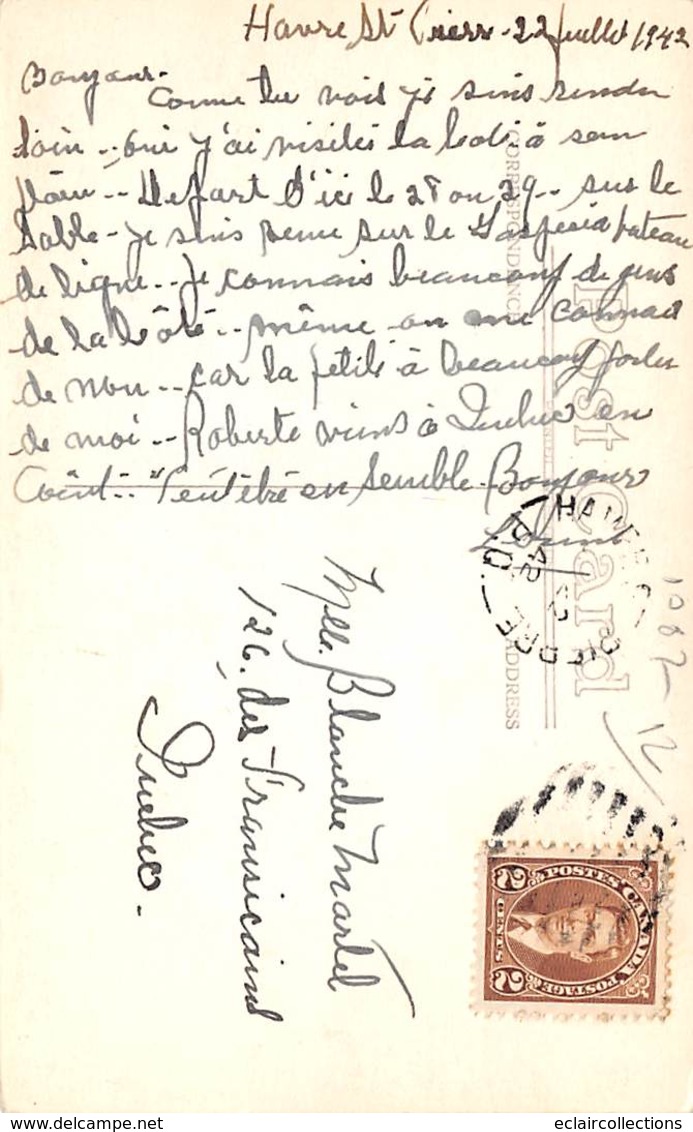 Havre St Pierre - 22 Juillet 1942
Bonjour -
Comme tu vois je suis rendu
loin .. oui j'ai visités la Coté à son
plein .. Depart d'ici le 28 ou 29 .. sur le
Sable - je suis venu sur le Gaspesia bateau
de ligne .. Je connais beaucoup de gens
de la Côté .. même on me connait
de nom .. car la petite à beaucoup parler
de moi .. Roberte viens à Quebec en
Août .. Peut être ensemble. Bonjour
CORRESPONDANCE
Post Card
ADDRESS
HAVRE ST PIERRE
P.Q.
42
Mlle. Blanche Martel
126. des Franciscains
Quebec.
1087-12
2 POSTES CANADA POSTAGE 2
CENTS
delcampe.net
eclaircollections